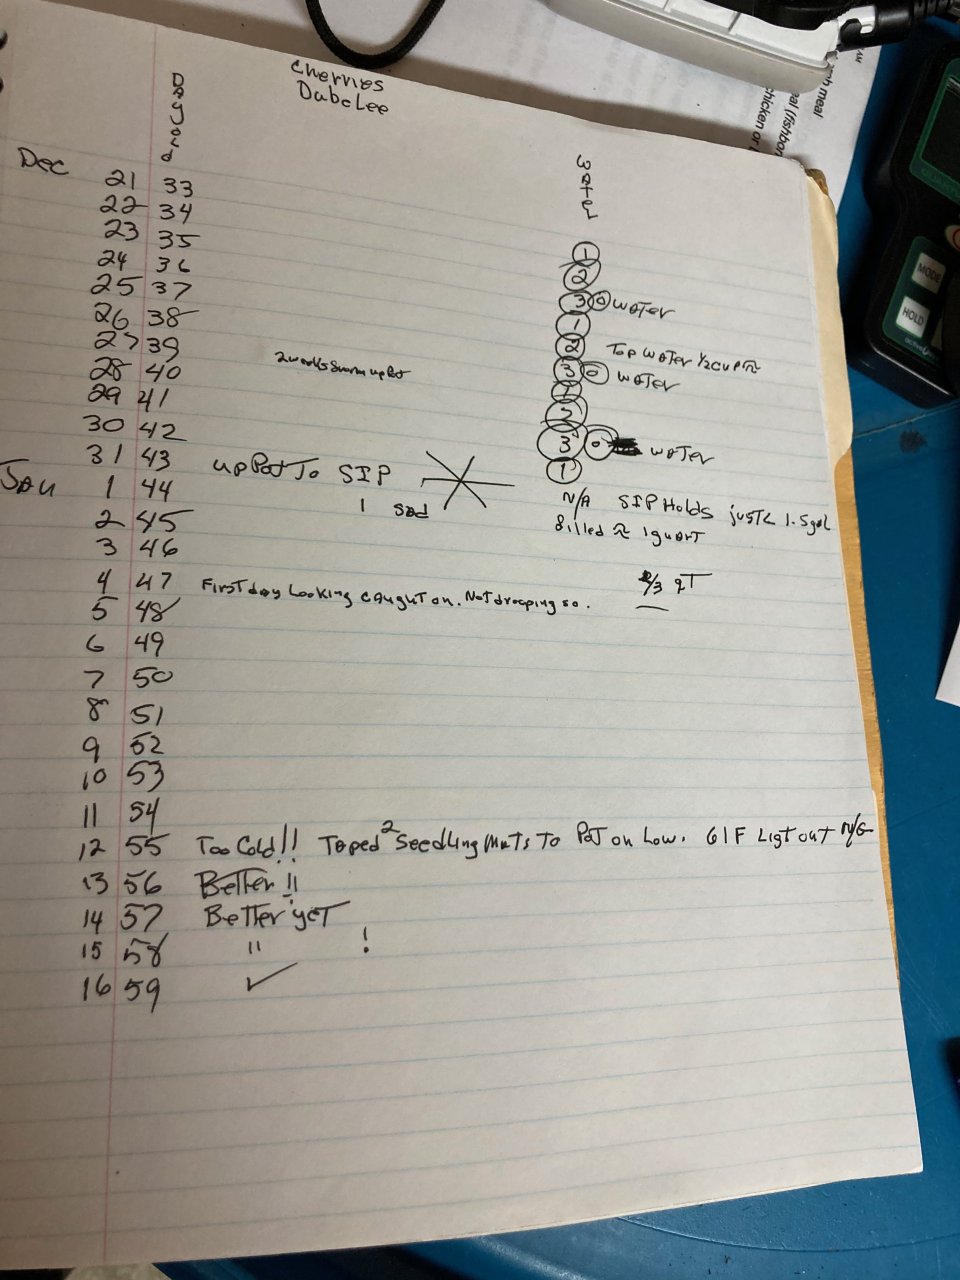 Cherries
Dubelee
Days old
Water
Dec 21 33
22 34
23 35 1
24 36 2
25 37 3 0 Water
26 38 1
27 39 2 Top Water 1/2 cup ≈
28 40 3 0 Water
29 41 1
30 42 2
31 43 up Pot To SIP 3 0 Water
1
Jan 1 44 1 sad N/A SIP Holds just < 1.5 gal
2 45 filled ≈ 1 quart
3 46
4 47 First day Looking caught on. Not drooping so. 2/3 qT
5 48
6 49
7 50
8 51
9 52
10 53
11 54
12 55 Too Cold!! Taped 2 Seedling Mats To Pot on Low. 61 F Ligt out N/G
13 56 Better!!
14 57 Better yet
15 58 " !
16 59 ✓
MODE
HOLD
meal
chicken or